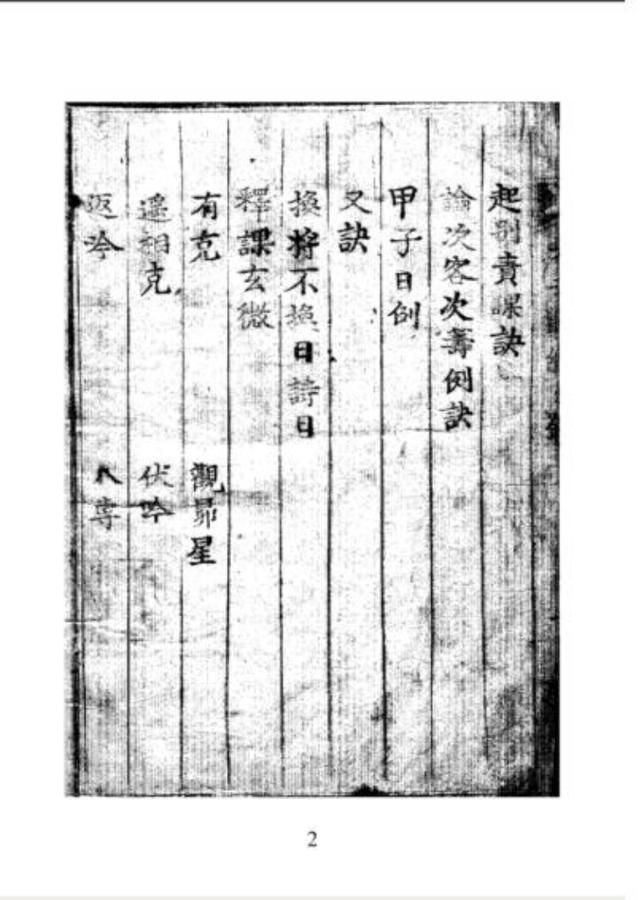 起別責課訣
論次客次壽例訣
甲子日例
又訣
換將不換日詩日
釋課玄微
有克 觀昴星
遥相克 伏吟
返吟 八專
2